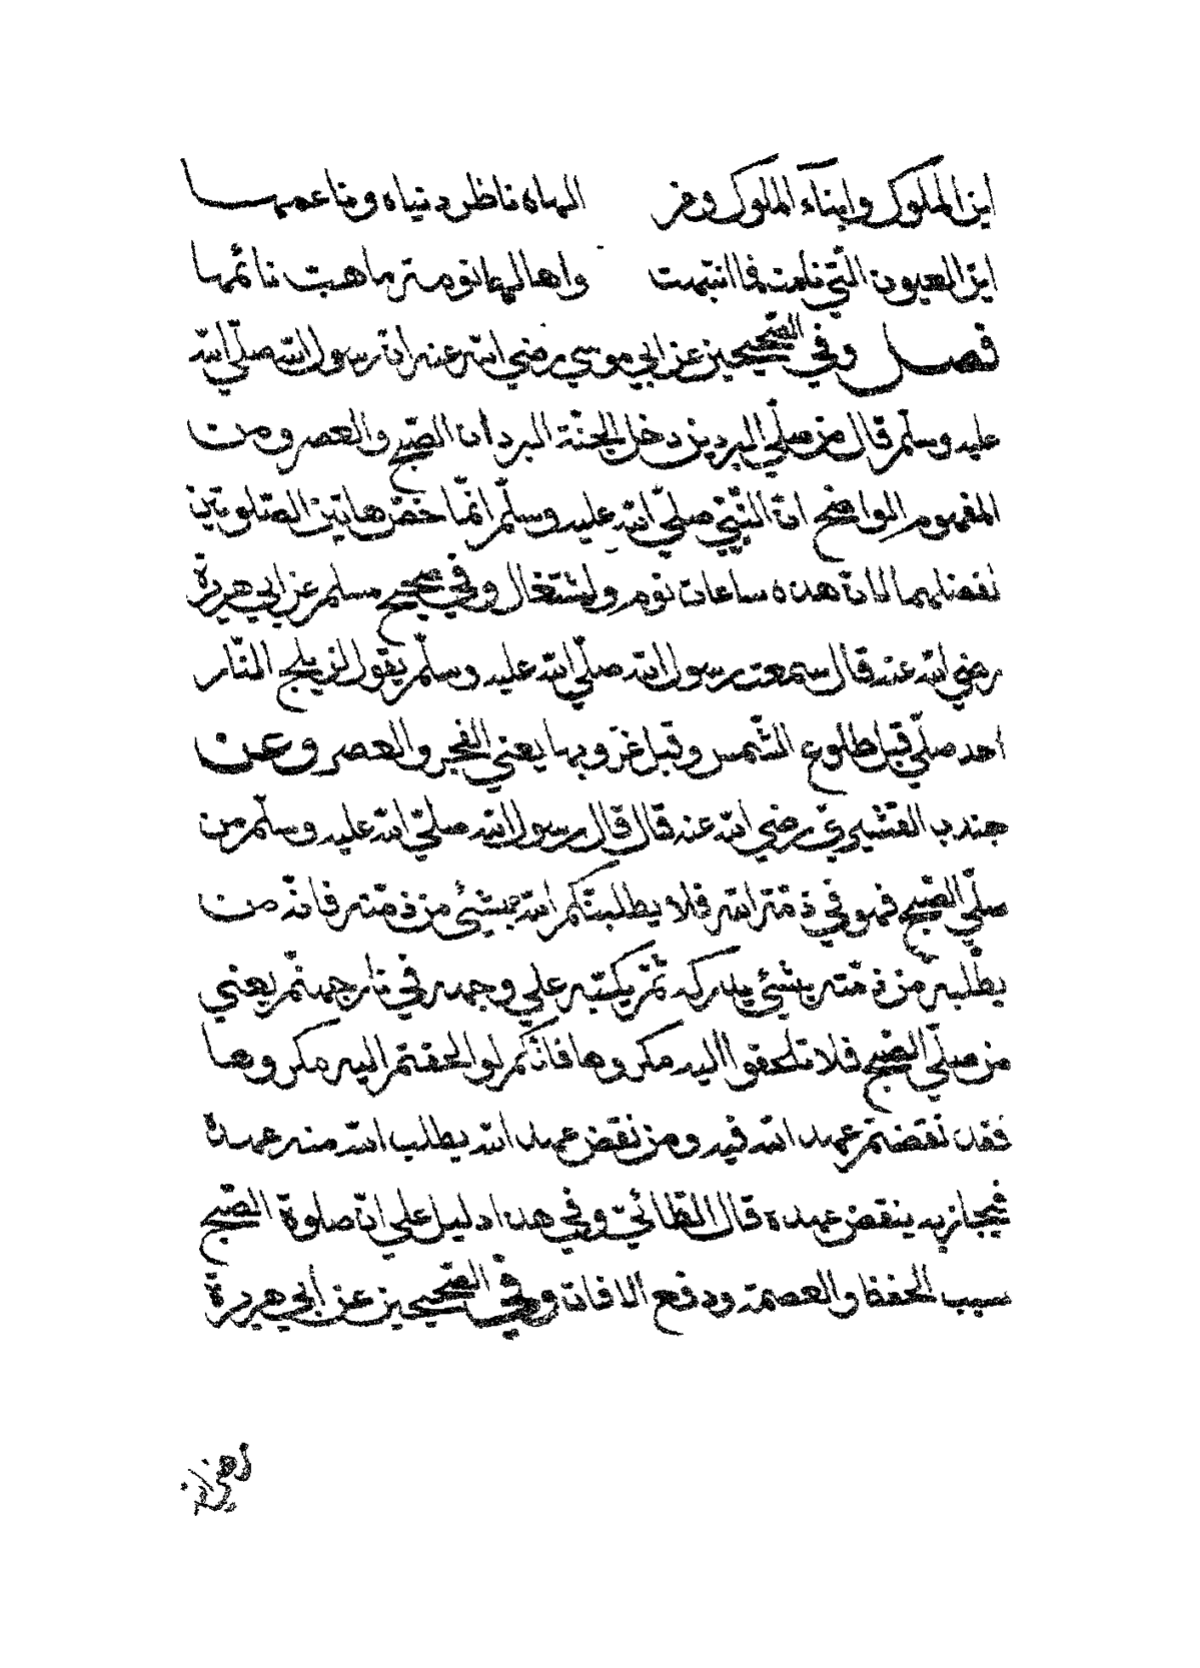 اين الملوك وابناء الملوك ومن الهاه ناظر دنياه وناعمها
اين العيون التي نامت فما انتبهت واها لها نومة ما هبت نائمها
فصل وفي الصحيحين عن ابي موسي رضي الله عنه ان رسول الله صلي الله
عليه وسلم قال من صلي البردين دخل الجنة البردان الصبح والعصر ومن
المفهوم الواضح ان النبي صلي الله عليه وسلم انما خص هاتين الصلوتين
لفضلهما لان هذه ساعات نوم واشتغال وفي صحيح مسلم عن ابي هريرة
رضي الله عنه قال سمعت رسول الله صلي الله عليه وسلم يقول لن يلج النار
احد صلي قبل طلوع الشمس وقبل غروبها يعني الفجر والعصر وعن
جندب القشيري رضي الله عنه قال قال رسول الله صلي الله عليه وسلم من
صلي الصبح فهو في ذمة الله فلا يطلبنكم الله بشئ من ذمته فانه من
يطلبه من ذمته بشئ يدركه ثم يكبه علي وجهه في نار جهنم يعني
من صلي الصبح فلا تلحقوا اليه مكروها فانكم لو الحقتم اليه مكروها
فقد نقضتم عهد الله فيه ومن نقض عهد الله يطلب الله منه عهده
فيجازيه بنقض عهده قال الطائي وفي هذا دليل علي ان صلوة الصبح
سبب الحفظ والعصمة ودفع الافات وفي الصحيحين عن أبي هريرة
رضي الله